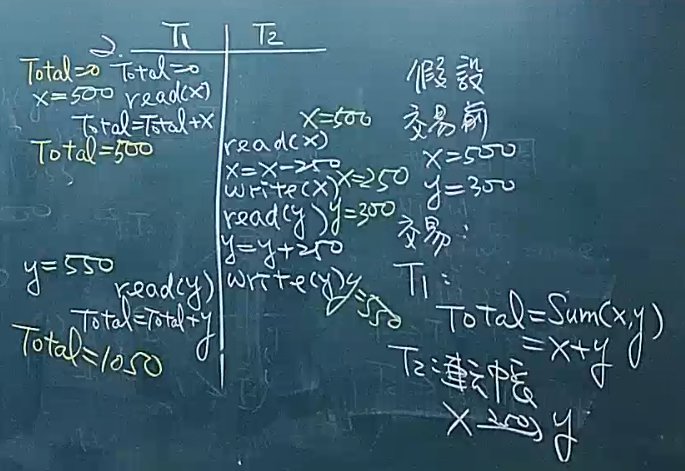 2.
T1 T2
Total=0 Total=0
x=500 read(x)
Total=Total+x
Total=500
x=500
read(x)
x=x-250
write(x) x=250
read(y) y=300
y=y+250
write(y) y=550
y=550
read(y)
Total=Total+y
Total=1050
假設
交易前
x=500
y=300
交易:
T1:
Total=Sum(x,y)
=x+y
T2:
x 250 y